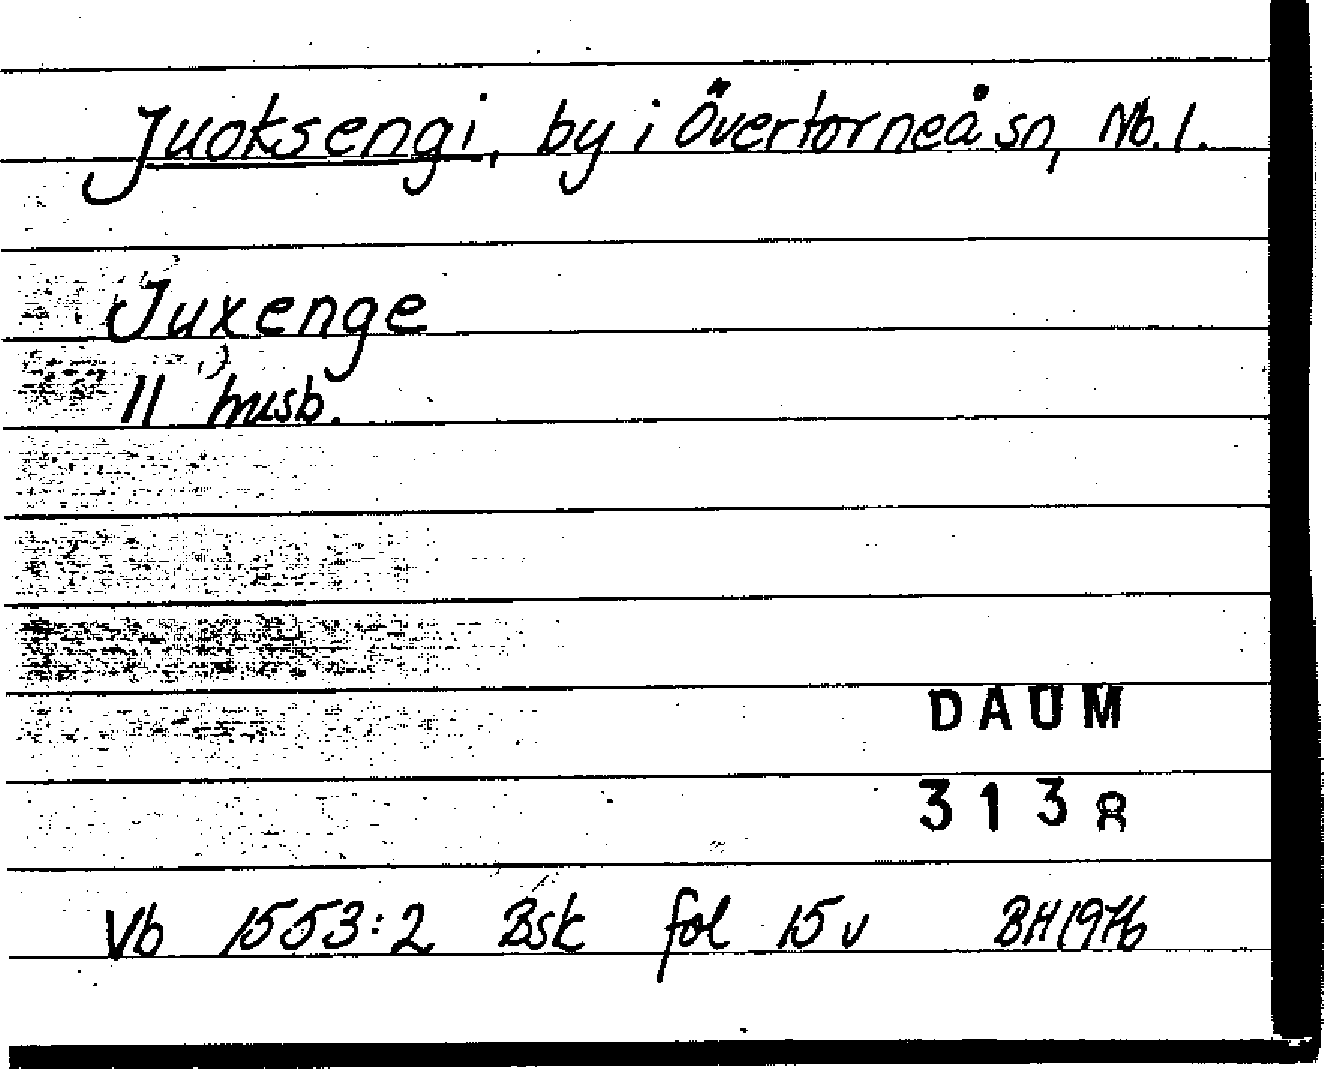 Juoksengi, by i Övertorneå sn, Nb. l.
Juxenge
11 husb.
DAUM
3138
Vb 1553:2 Bsk fol 15 v BH 1976